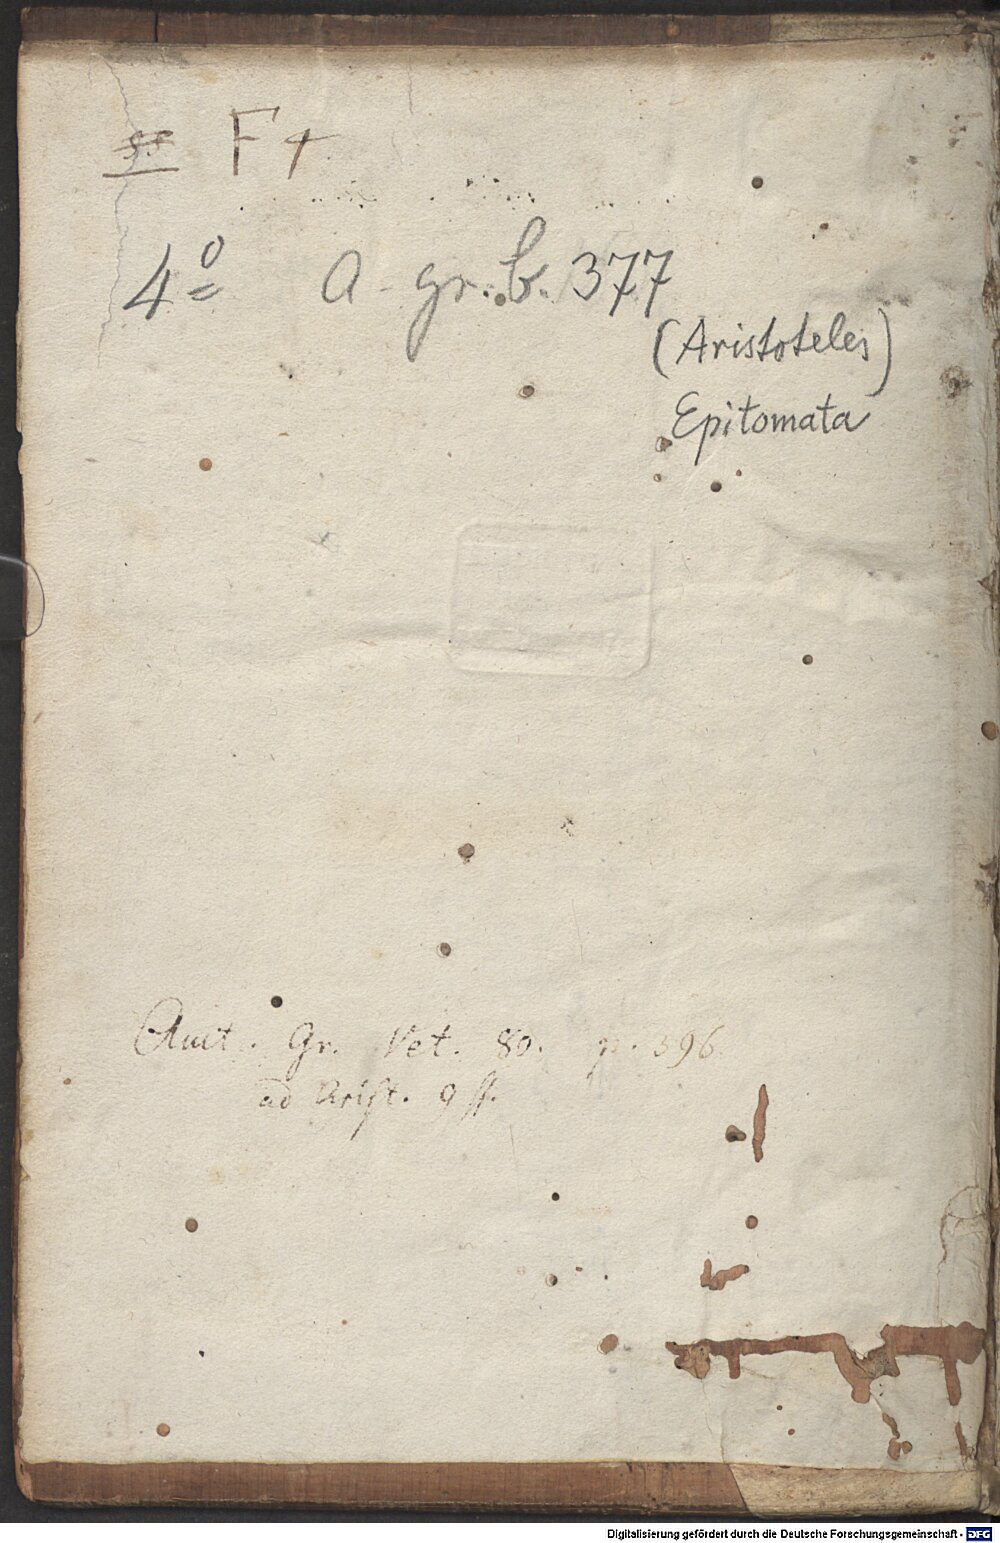 F +
4º A. gr. b. 377
(Aristoteles)
Epitomata
Auct. Gr. Vet. 80. p. 396
ad Arist. 9 ff.
Digitalisierung gefördert durch die Deutsche Forschungsgemeinschaft - DFG